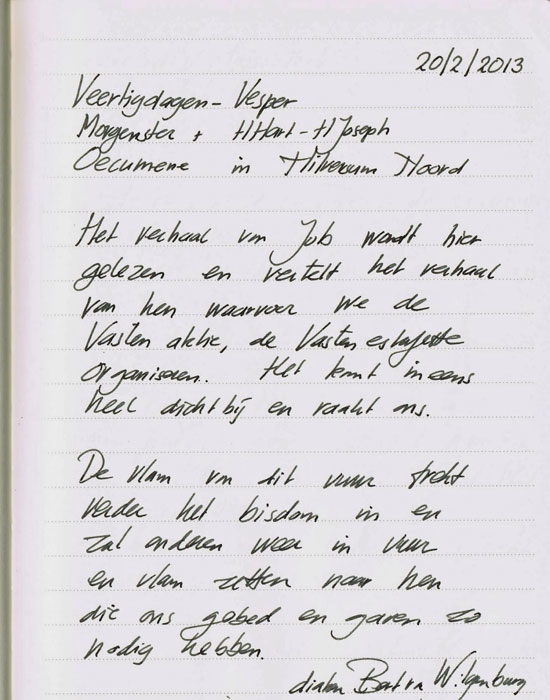 20/2/2013
Veertigdagen - Vesper
Morgenster + HHart - H Joseph
Oecumene in Hilversum Noord
Het verhaal van Job wordt hier
gelezen en vertelt het verhaal
van hen waarvoor we de
Vasten aktie, de Vasten estafette
organiseren. Het komt ineens
heel dichtbij en raakt ons.
De vlam van dit vuur trekt
verder het bisdom in en
zal anderen weer in vuur
en vlam zetten naar hen
die ons gebed en gaven zo
nodig hebben.
diaken Bert v. Wilgenburg